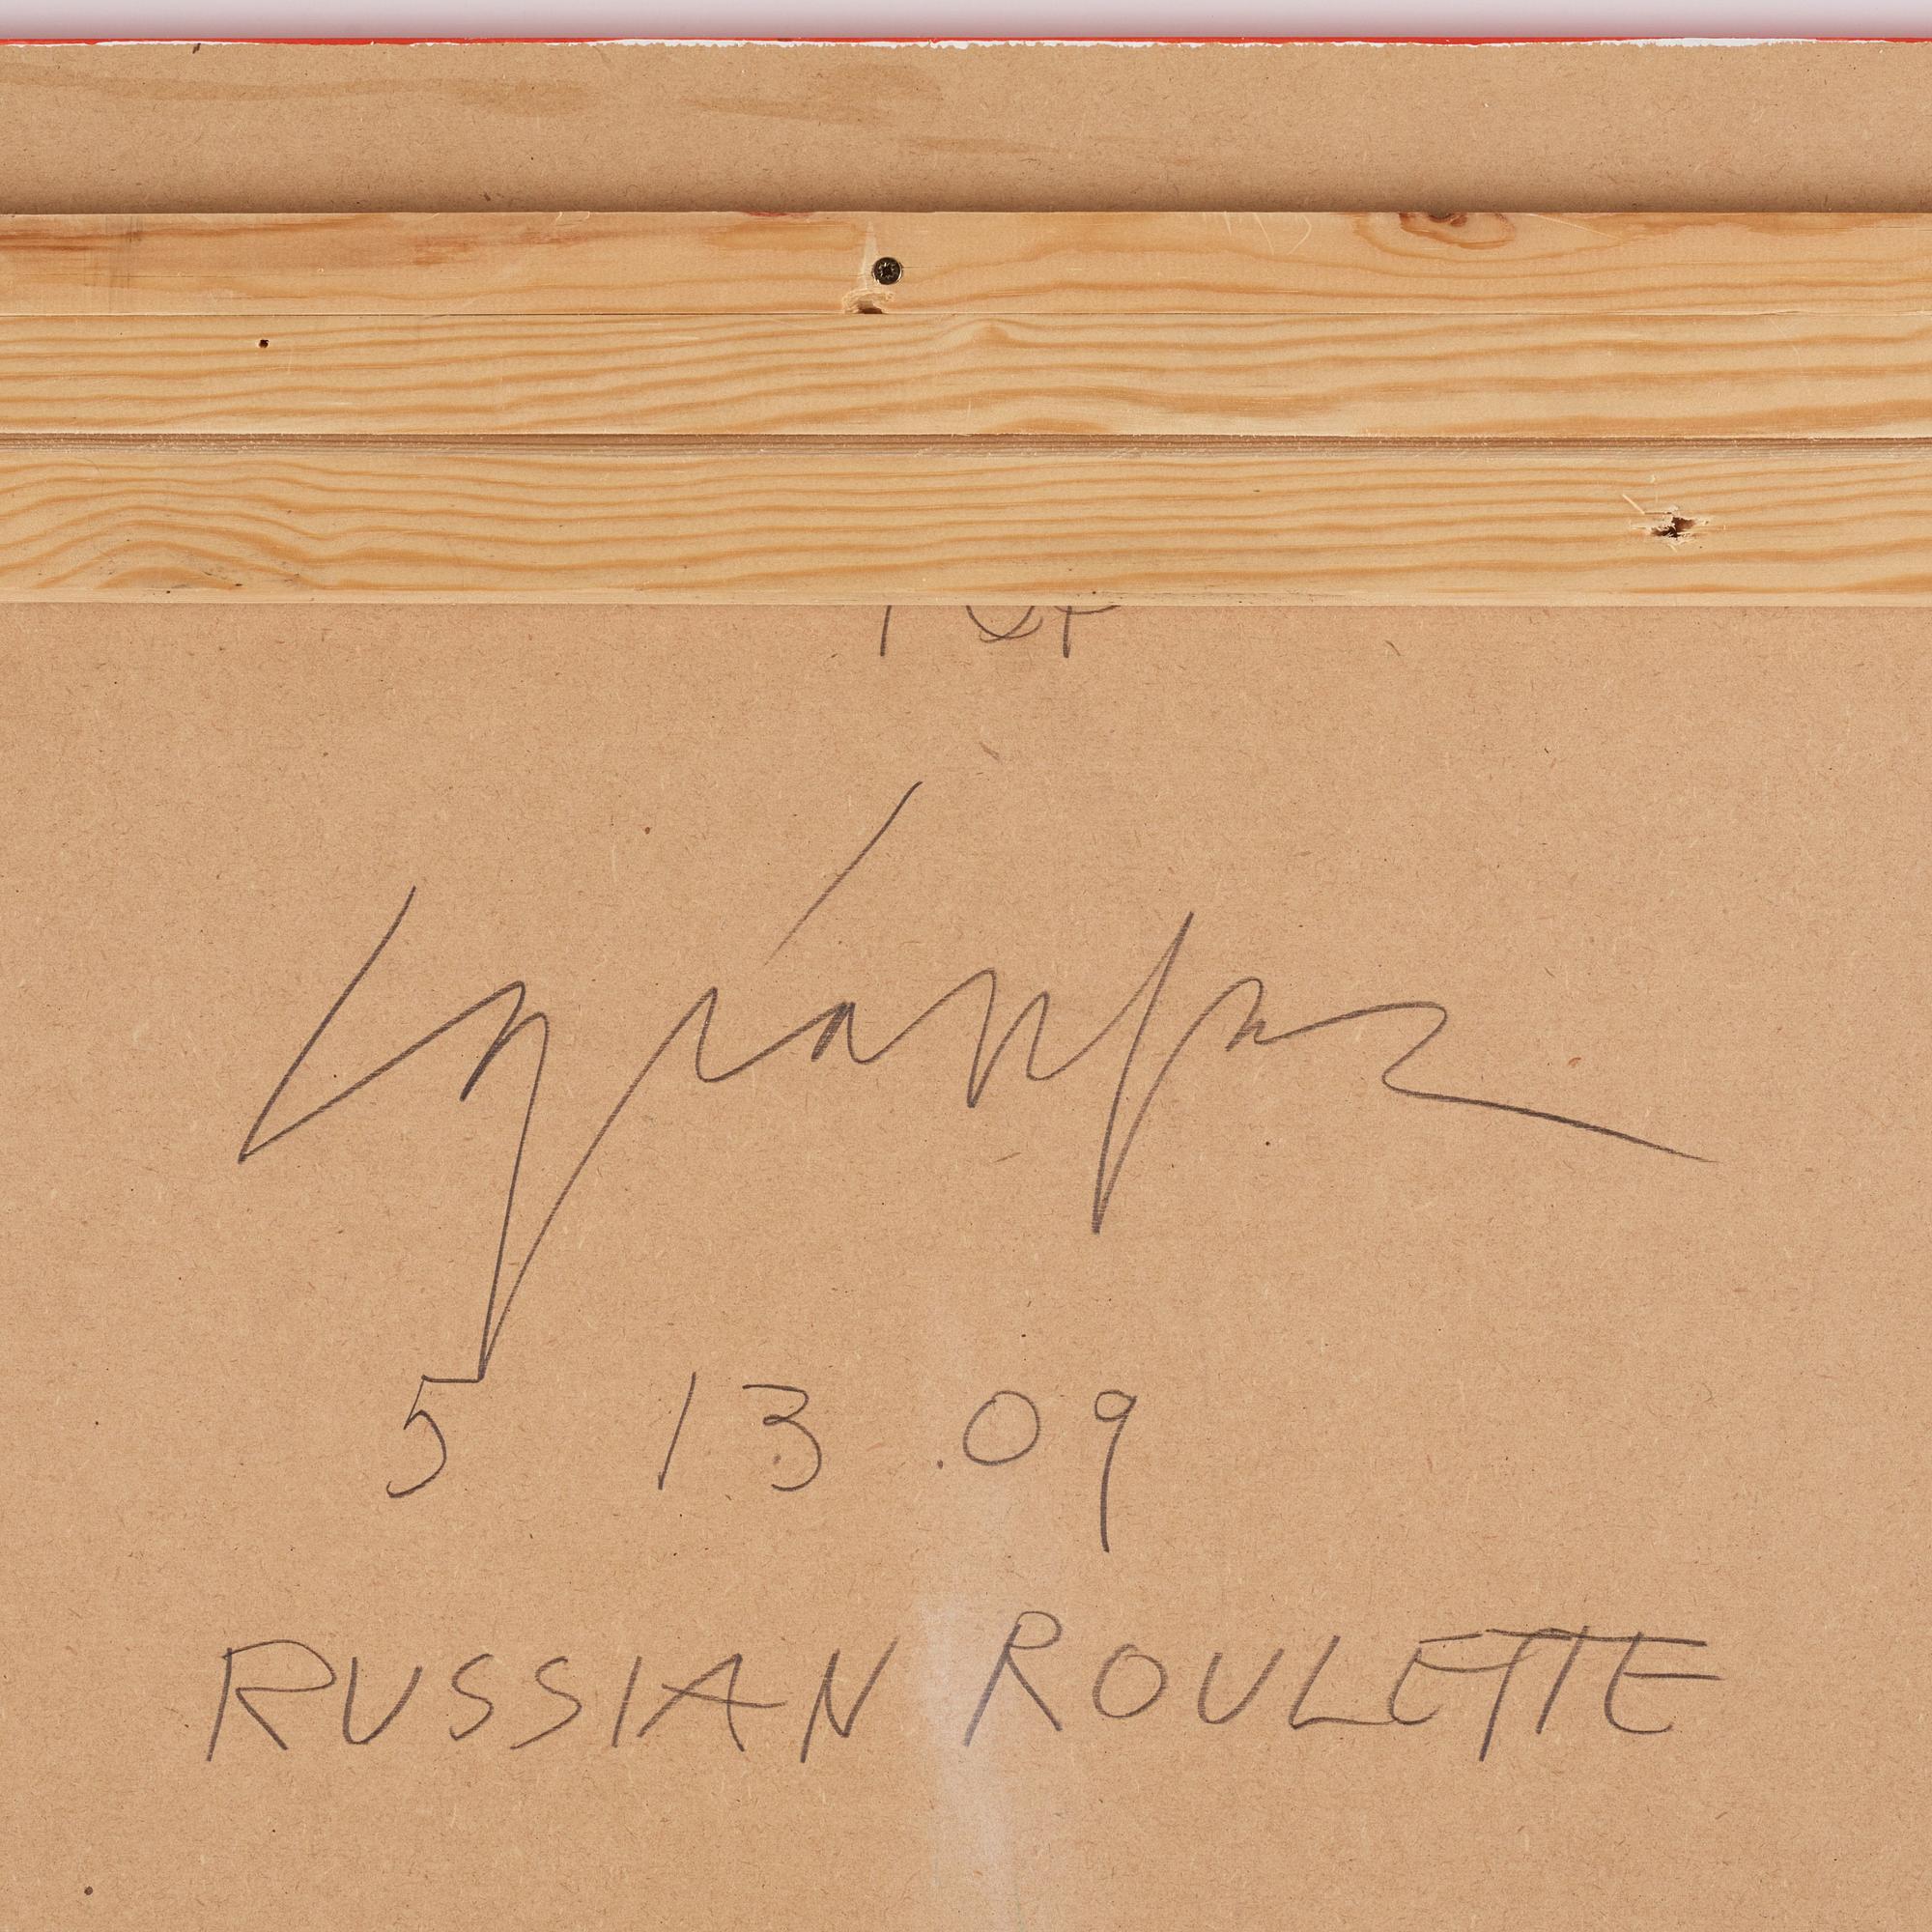 TOP
5 13.09
RUSSIAN ROULETTE